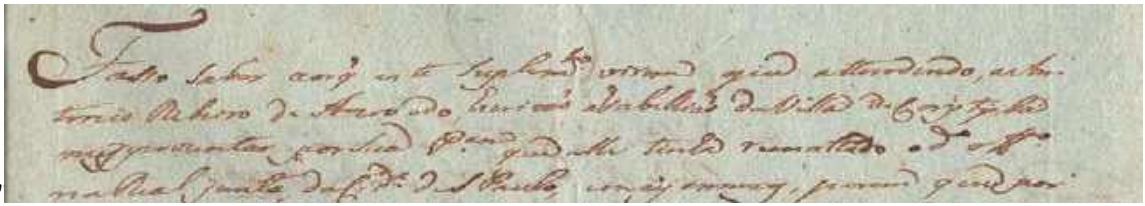 Fasso Saber aos q̃ este Suplem.to virem que attendendo, a An
tonio Ribeiro de Azevedo, Escrivaõ e Tabelliaõ da Villa de Corytyba
me reprezentar por sua P.am que elle tinha rematado o d.o off.o
na Real junta da C.de de S Paulo, porem que por